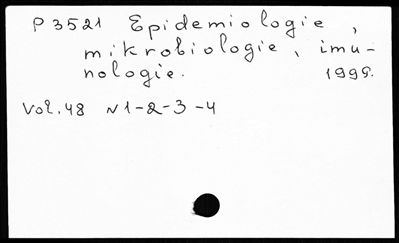 P 3521 Epidemiologie,
mikrobiologie, imu-
nologie. 1999.
Vol. 48 N1-2-3-4